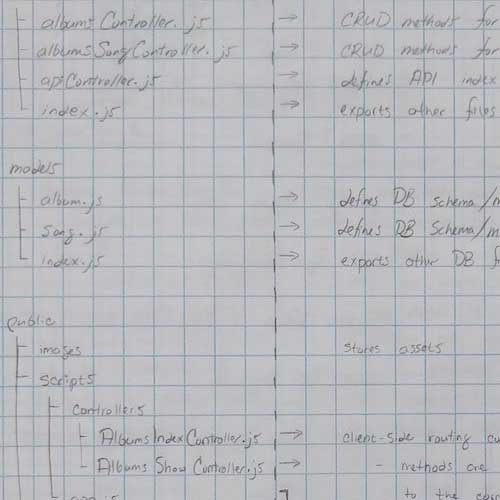 ├ albumsController.js → CRUD methods for
├ albumsSongController.js → CRUD methods for
├ apiController.js → defines API index
└ index.js → exports other files
models
├ album.js → defines DB Schema/m
├ song.js → defines DB Schema/m
└ index.js → exports other DB f
public
├ images stores assets
├ scripts
├ controllers
├ AlbumsIndexController.js → client-side routing
├ AlbumsShowController.js → - methods are
to the